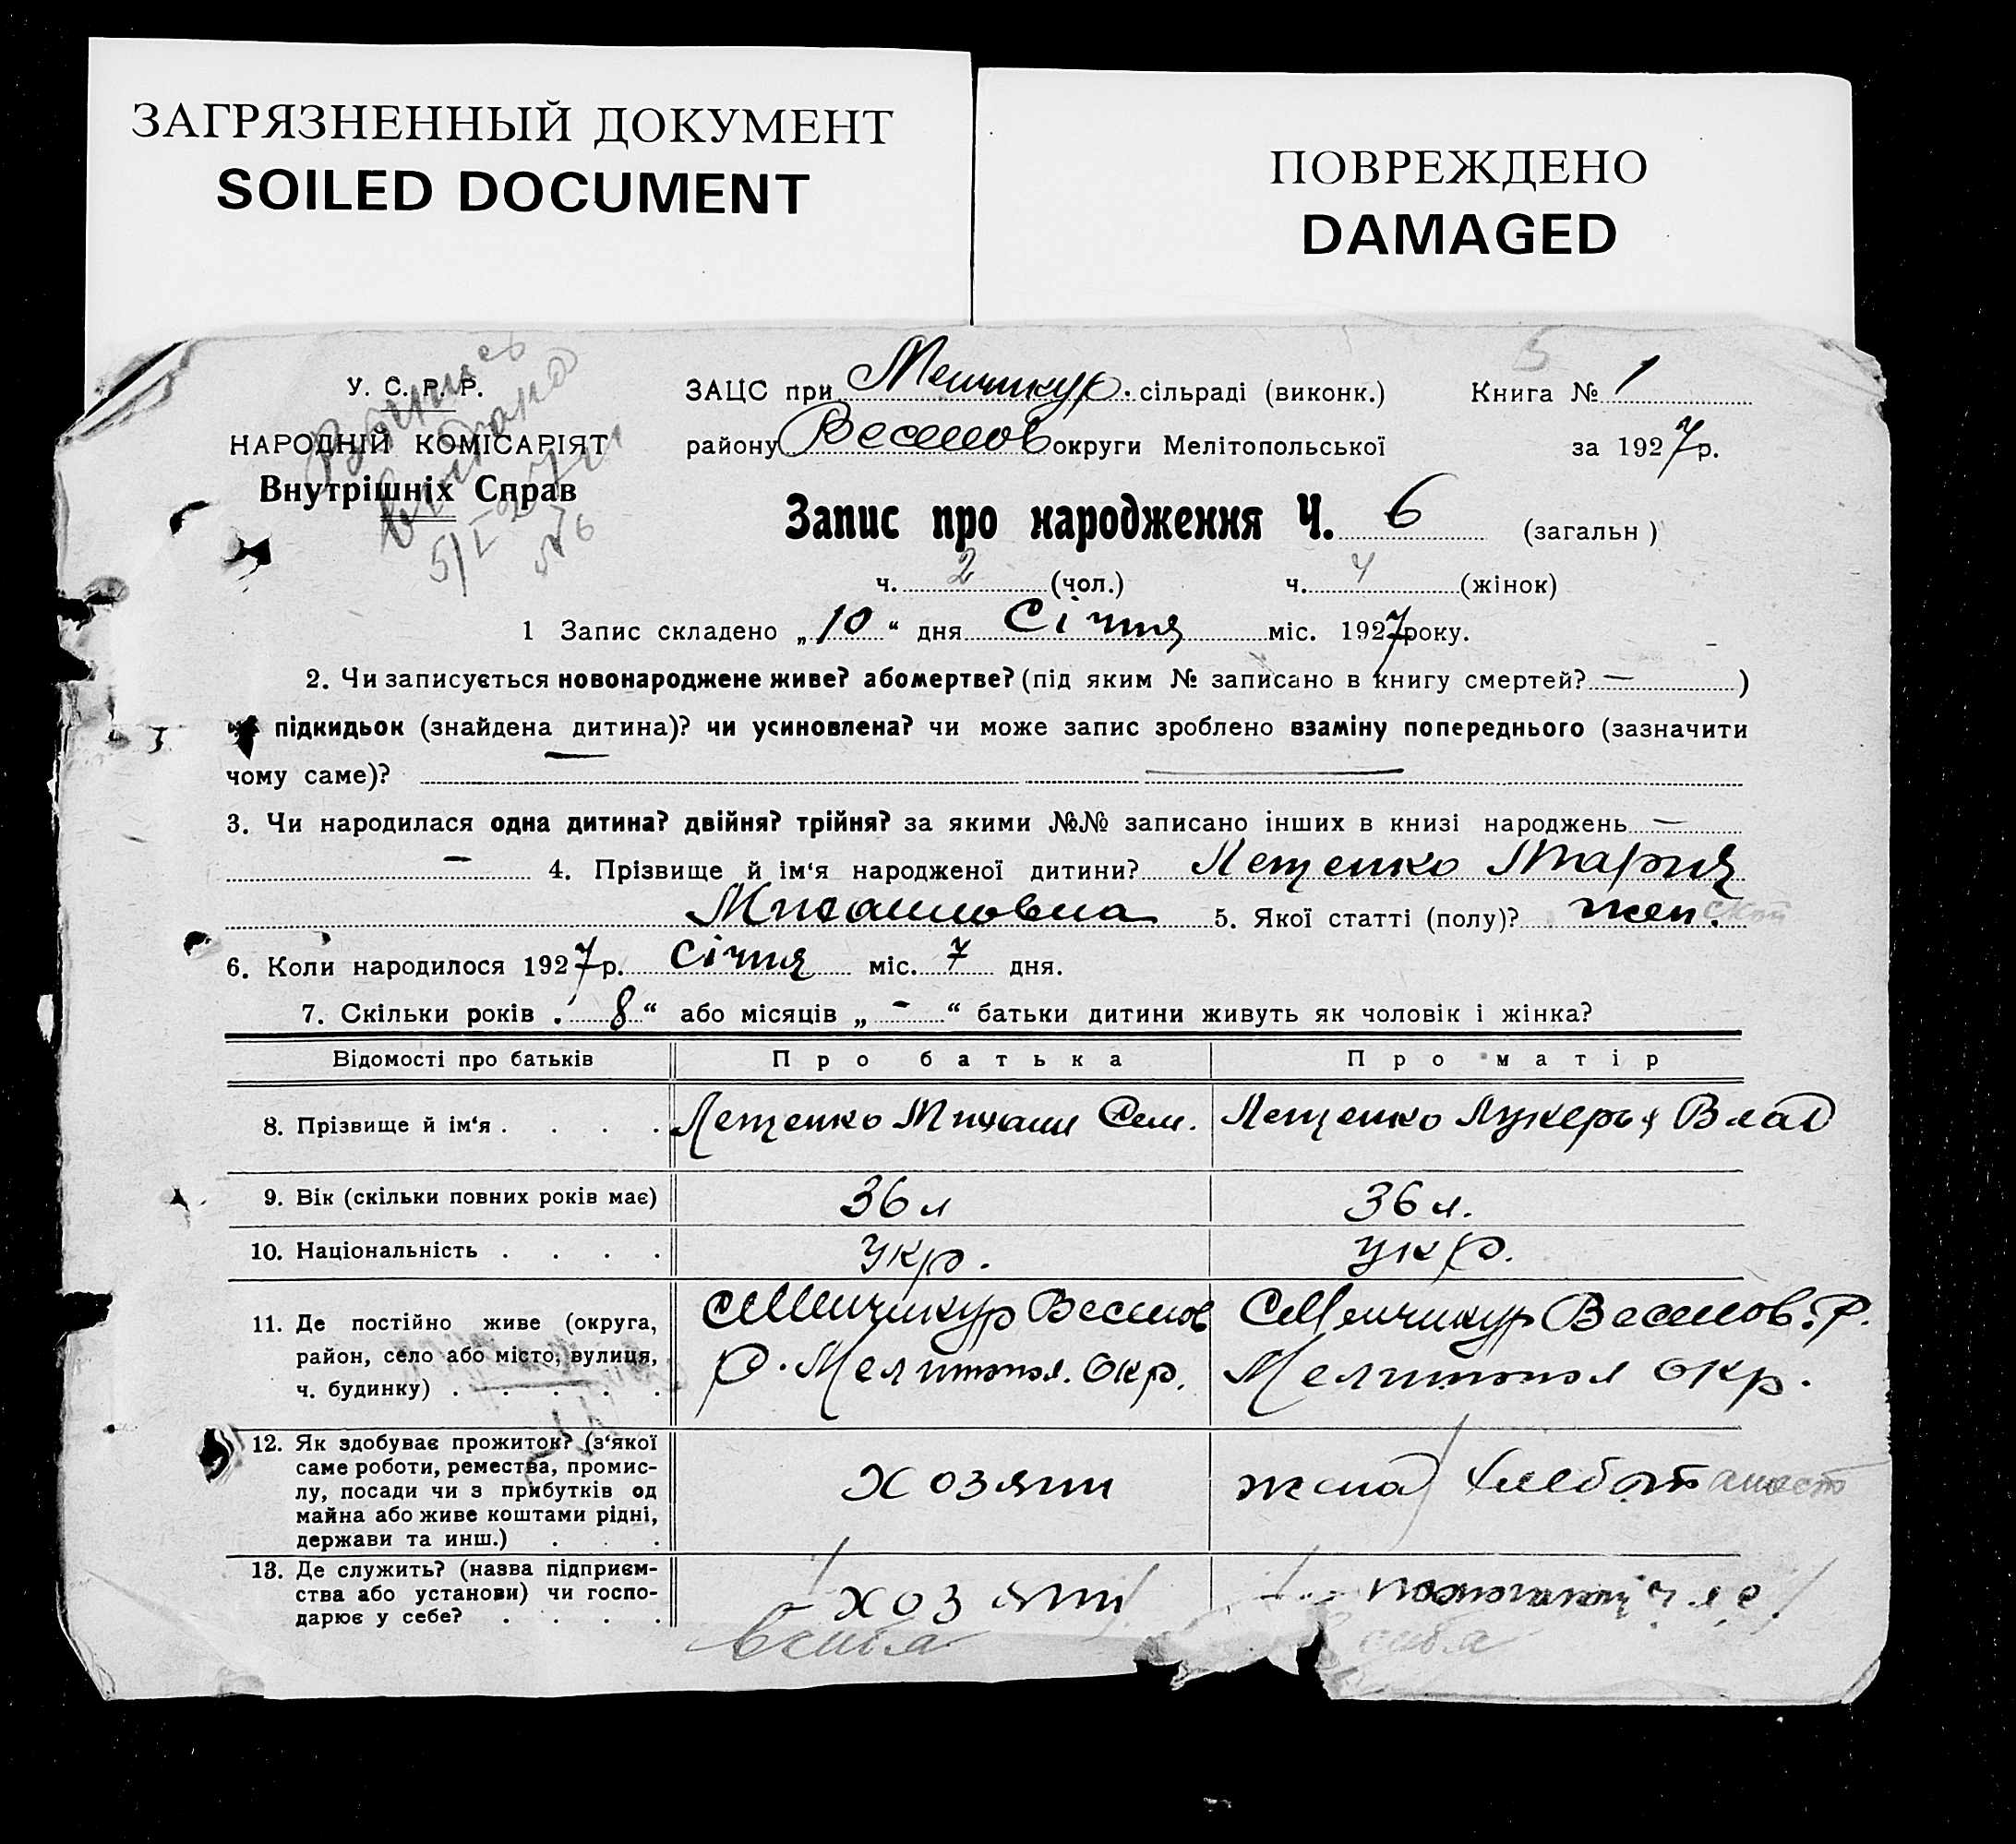 ЗАГРЯЗНЕННЫЙ ДОКУМЕНТ
SOILED DOCUMENT
ПОВРЕЖДЕНО
DAMAGED
У. С. Р. Р.
НАРОДНІЙ КОМІСАРІЯТ
Внутрішніх Справ
5/I 27
№ 6
5
ЗАЦС при Менчикур. сільраді (виконк.) Книга № 1
району Веселов округи Мелітопольської за 1927 р.
Запис про народження Ч. 6 (загальн )
ч. 2 (чол.) ч. 4 (жінок)
1 Запис складено „ 10 “ дня Січня міс. 1927 року.
2. Чи записується новонароджене живе? або мертве? (під яким № записано в книгу смертей? — )
підкидьок (знайдена дитина)? чи усиновлена? чи може запис зроблено взаміну попереднього (зазначити
чому саме)?
3. Чи народилася одна дитина? двійня? трійня? за якими №№ записано інших в книзі народжень —
— 4. Прізвище й ім‘я народженої дитини? Лещенко Мария
Михаиловна 5. Якої статті (полу)? жен.ской
6. Коли народилося 1927 р. Січня міс. 7 дня.
7. Скільки років „ 8 “ або місяців „ - “ батьки дитини живуть як чоловік і жінка?
Відомості про батьків Про батька Про матір
8. Прізвище й ім‘я . . . . Лещенко Михаил Сем. Лещенко Лукерья Влад
9. Вік (скільки повних років має) 36 л 36 л.
10. Національність . . . . Укр. укр.
11. Де постійно живе (округа, район, село або місто, вулиця, ч. будинку) . . . . .
с Менчикур Веселов
Р. Мелитопол. Окр.
с Менчикур Веселов. Р.
Мелитопол окр.
12. Як здобуває прожиток? (з‘якої саме роботи, ремества, промислу, посади чи з прибутків од майна або живе коштами рідні, держави та инш.) . . .
хозяин
жена / хлебопашест
13. Де служить? (назва підприємства або установи) чи господарює у себе? . . . .
хозяин
в сибя
сибя